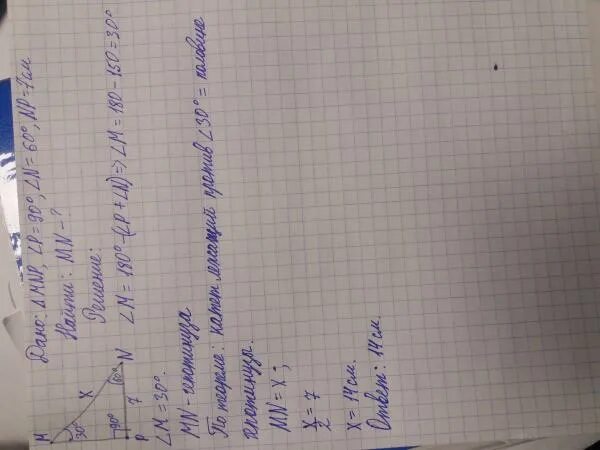 Дано: ΔMNP, ∠P=90°, ∠N=60°, NP=7см
Найти: MN-?
Решение:
∠M=180°-(∠P+∠N)=>∠M=180-150=30°
M
30°
X
60°
N
90°
7
P
∠M=30°.
MN-гипотинуза
По теореме: катет лежащий против ∠30°= половине
гипотинузы.
MN=X;
X/2=7
X=14см.
Ответ: 14см.